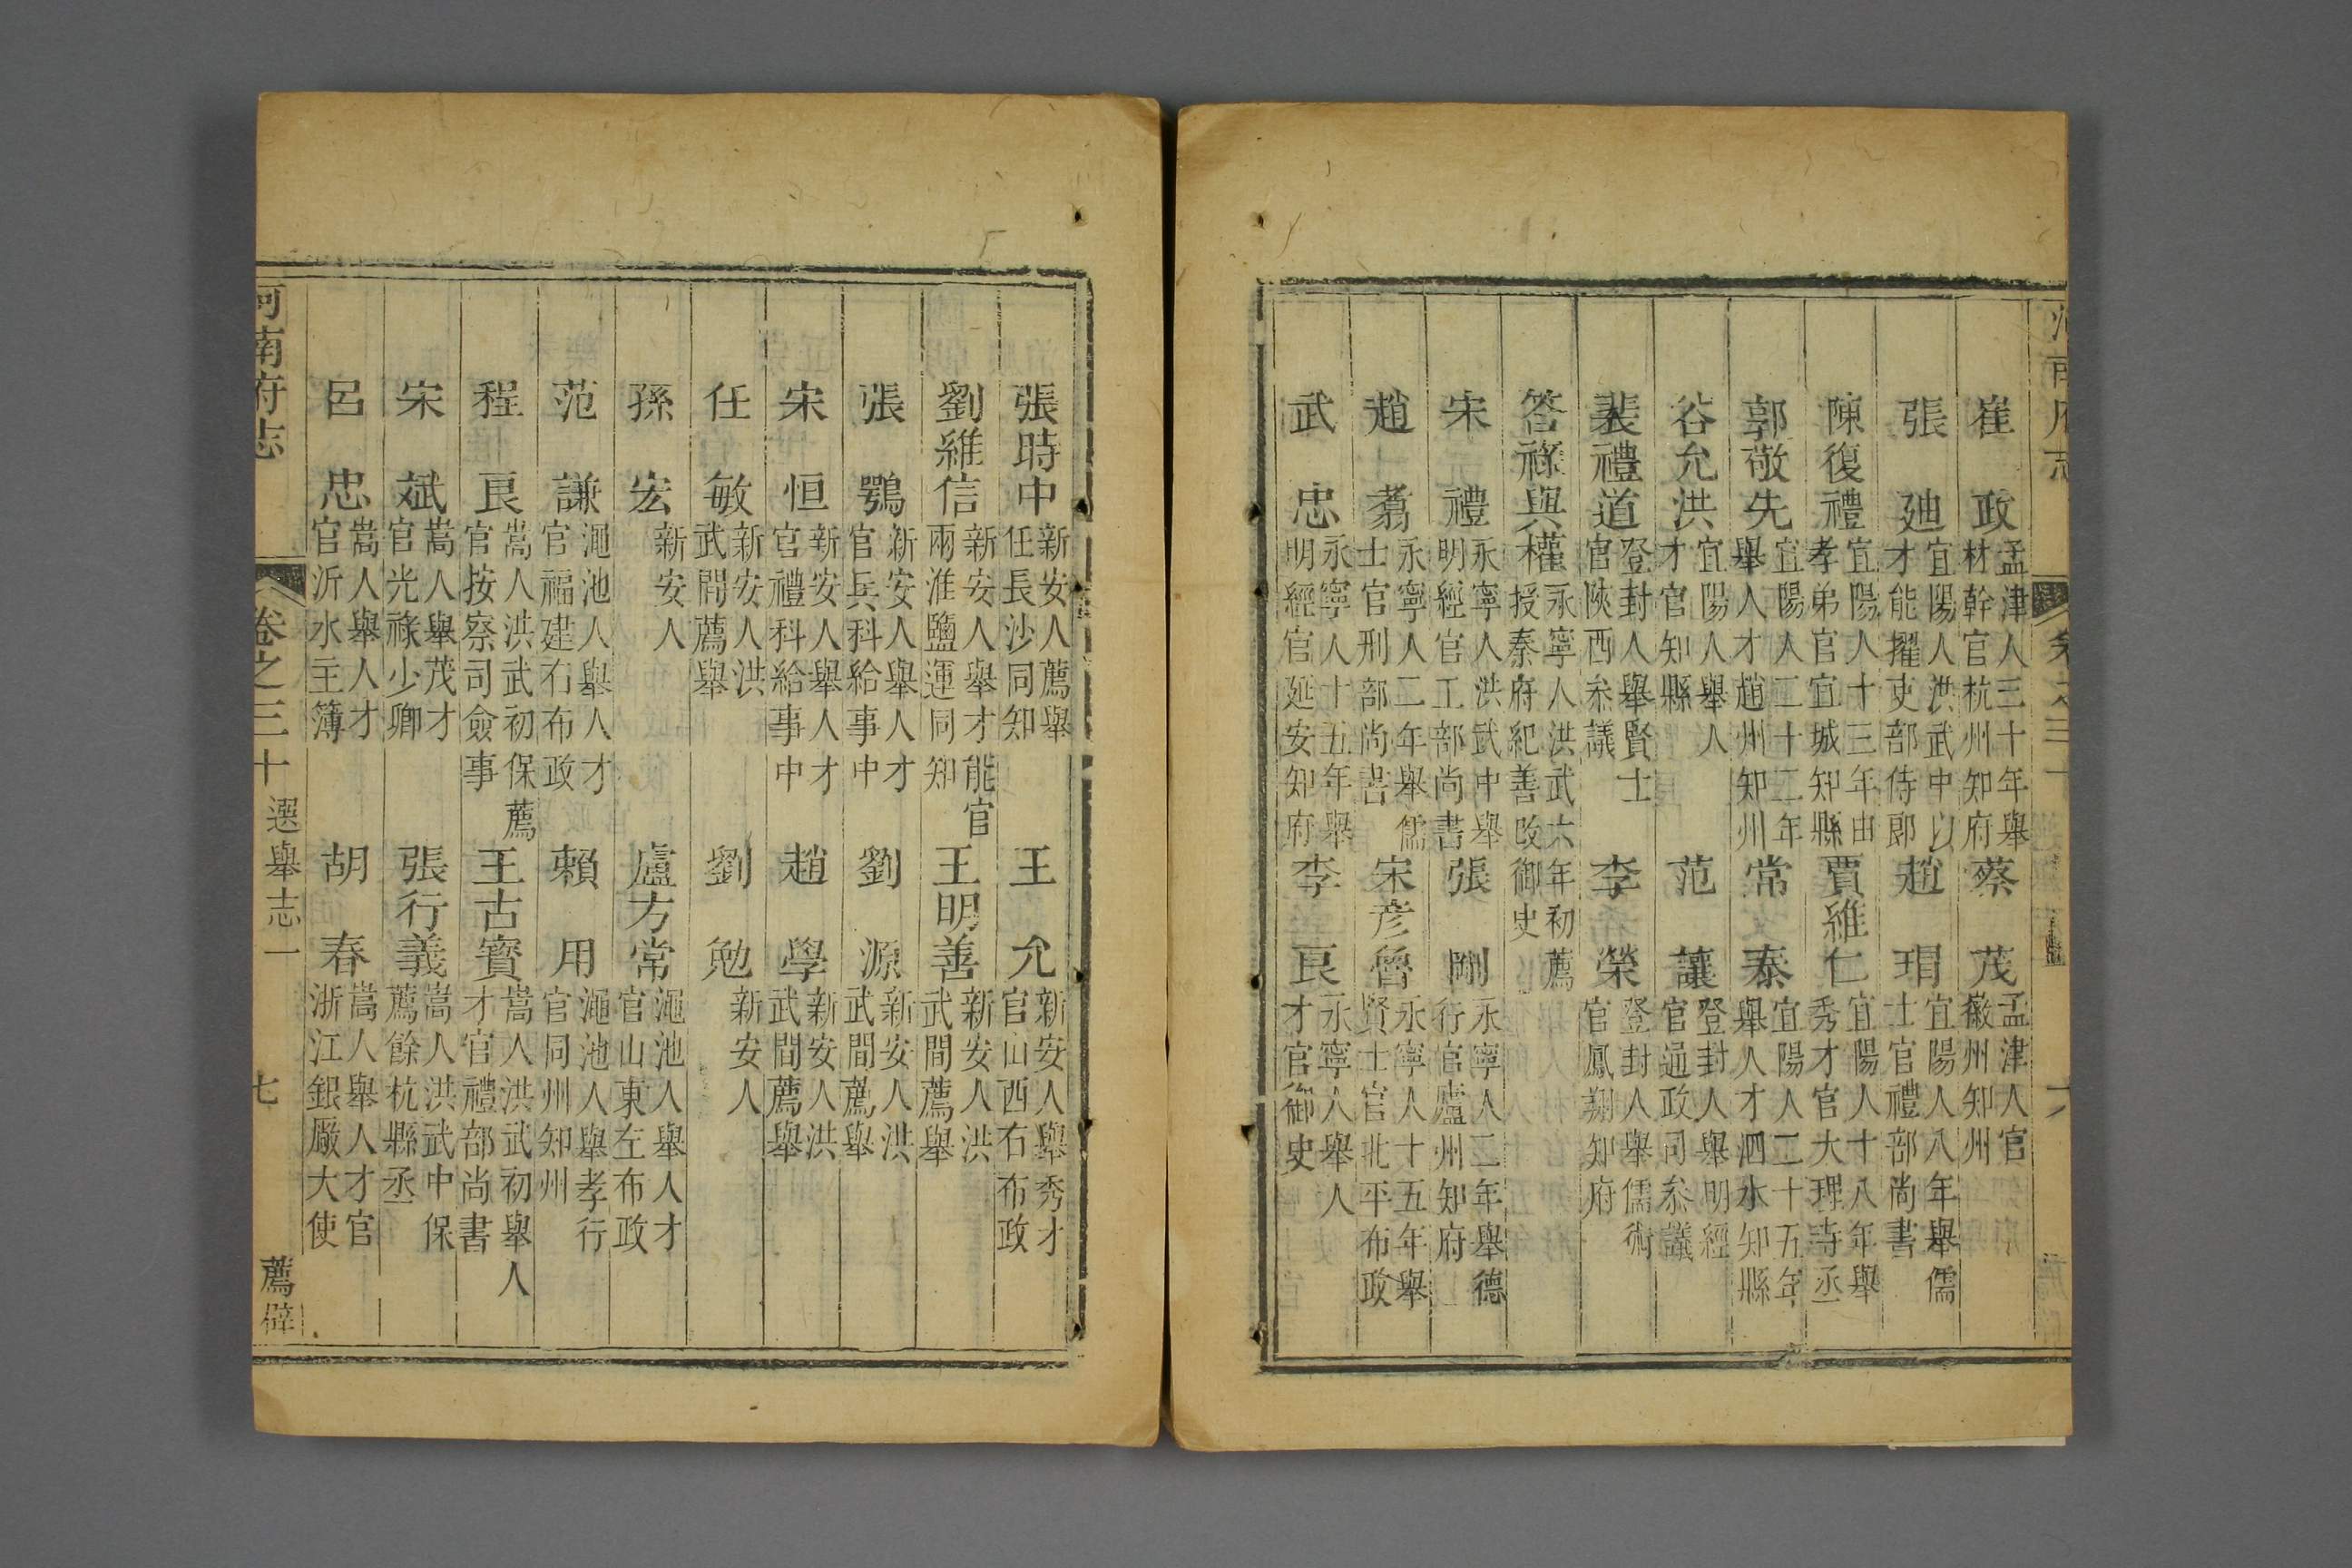 崔　政孟津人三十年舉材幹官杭州知府
蔡　茂孟津人官徽州知州
張　廸宜陽人洪武中以才能擢吏部侍郎
趙　瑁宜陽人八年舉儒士官禮部尚書
陳復禮宜陽人十三年由孝弟官宜城知縣
賈維仁宜陽人十八年舉秀才官大理寺丞
郭敬先宜陽人二十二年舉人才趙州知州
常　泰宜陽人二十五年舉人才泗水知縣
谷允洪宜陽人舉人才官知縣
范　讓登封人舉明經官通政司叅議
裴禮道登封人舉賢士官陝西叅議
李　榮登封人舉儒術官鳳翔知府
答祿與權永寧人洪武六年初薦授秦府紀善改御史
宋　禮永寧人洪武中舉明經官工部尚書
張　剛永寧人二年舉德行官廬州知府
趙　翥永寧人二年舉儒士官刑部尚書
宋彦魯永寧人十五年舉賢士官北平布政
武　忠永寧人十五年舉明經官延安知府
李　良永寧人舉人才官御史
張時中新安人薦舉任長沙同知
王　允新安人舉秀才官山西右布政
劉維信新安人舉才能官兩淮鹽運同知
王明善新安人洪武間薦舉
張　鶚新安人舉人才官兵科給事中
劉　源新安人洪武間薦舉
宋　恒新安人舉人才官禮科給事中
趙　學新安人洪武間薦舉
任　敏新安人洪武間薦舉
劉　勉新安人
孫　宏新安人
盧方常澠池人舉人才官山東左布政
范　謙澠池人舉人才官福建右布政
賴　用澠池人舉孝行官同州知州
程　良嵩人洪武初保薦官按察司僉事
王古寳嵩人洪武初舉人才官禮部尚書
宋　斌嵩人舉茂才官光祿少卿
張行義嵩人洪武中保薦餘杭縣丞
呂　忠嵩人舉人才官沂水主簿
胡　春嵩人舉人才官浙江銀厰大使
河南府志　卷之三十　選舉志一　七　薦辟